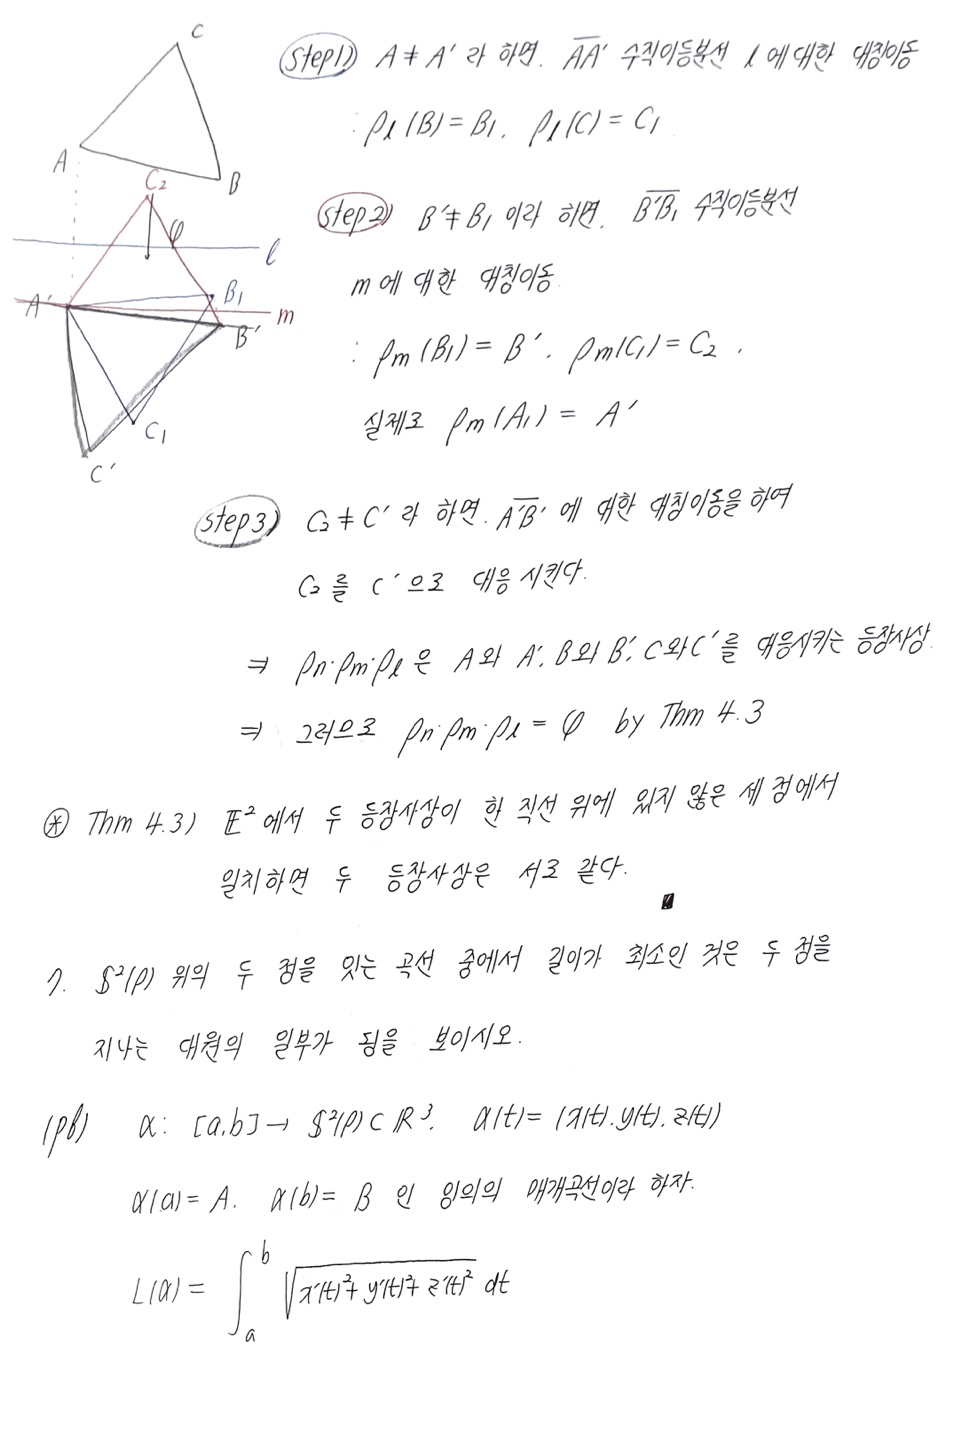 C
A
B
C₂
φ
l
A'
B₁
m
B'
C₁
C'
step1) A ≠ A' 라 하면. A̅A̅'̅ 수직이등분선 l 에 대한 대칭이동
: ρl (B) = B₁. ρl (C) = C₁
step2) B' ≠ B₁ 이라 하면. B̅'̅B̅₁ 수직이등분선
m 에 대한 대칭이동.
: ρm (B₁) = B'. ρm(C₁) = C₂ .
실제로 ρm (A₁) = A'
step3) C₂ ≠ C' 라 하면. A̅'̅B̅'̅ 에 대한 대칭이동을 하여
C₂ 를 C' 으로 대응 시킨다.
⇒ ρn·ρm·ρl 은 A와 A', B와 B', C와 C' 를 대응시키는 등장사상.
⇒ 그러므로 ρn·ρm·ρl = φ by Thm 4.3
⊛ Thm 4.3) E² 에서 두 등장사상이 한 직선 위에 있지 않은 세 점에서
일치하면 두 등장사상은 서로 같다.
7. S²(ρ) 위의 두 점을 잇는 곡선 중에서 길이가 최소인 것은 두 점을
지나는 대원의 일부가 됨을 보이시오.
(pf) α : [a,b] → S²(ρ) ⊂ R³. α(t) = (x(t), y(t), z(t))
α(a) = A. α(b) = B 인 임의의 매개곡선이라 하자.
L(α) = ∫ₐᵇ √(x'(t)² + y'(t)² + z'(t)²) dt